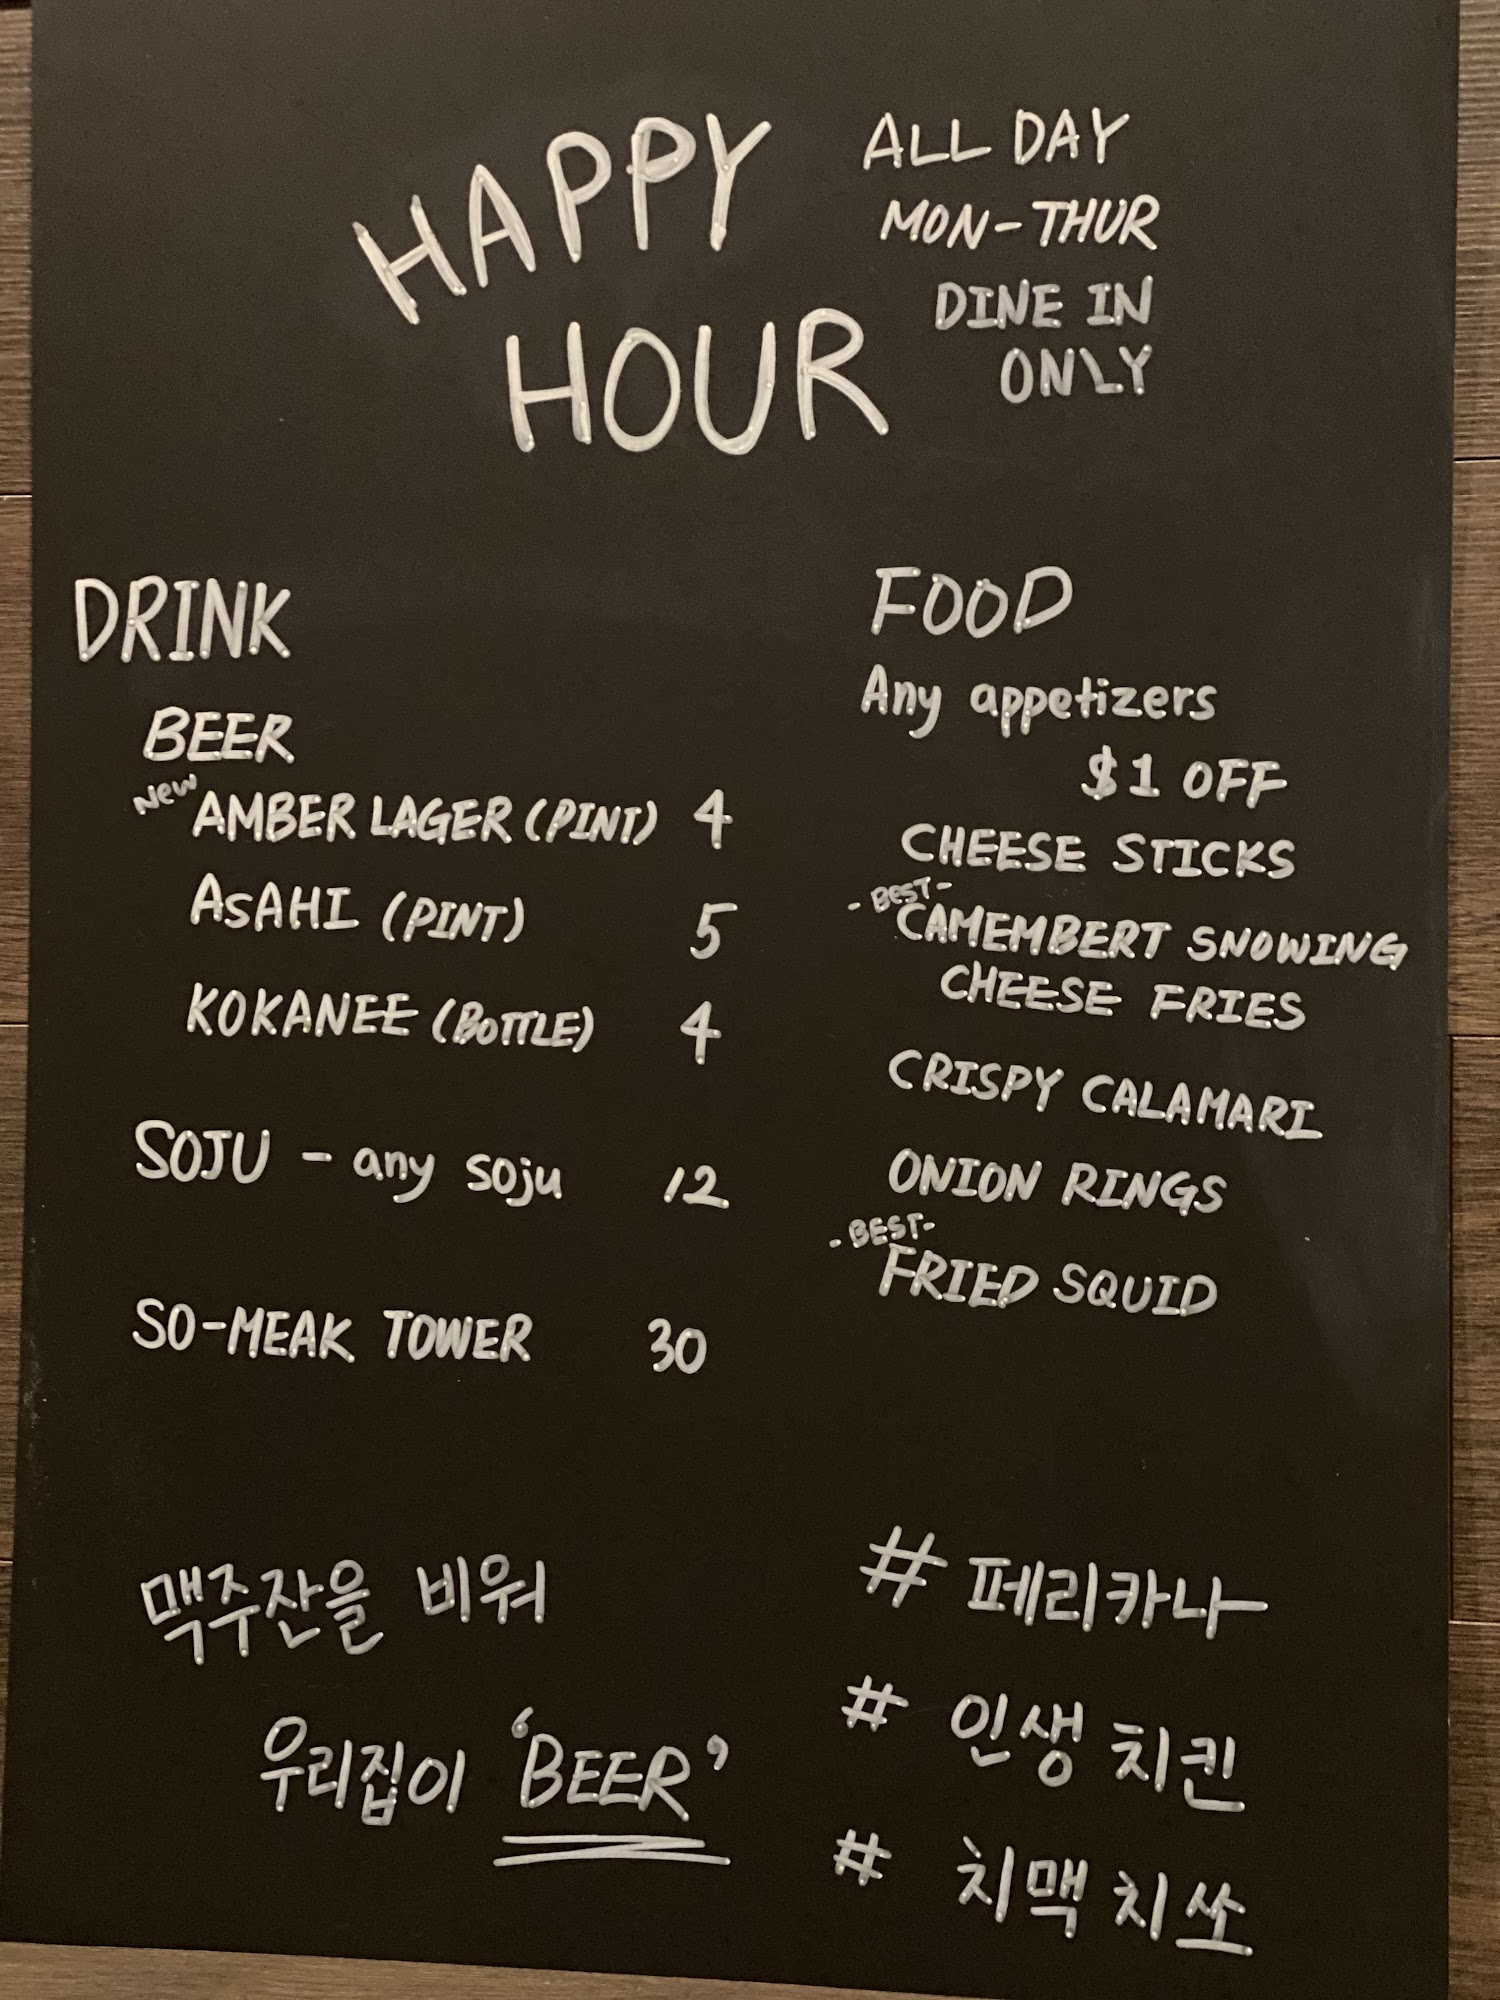 HAPPY
HOUR
ALL DAY
MON-THUR
DINE IN
ONLY
DRINK
BEER
New
AMBER LAGER (PINT) 4
ASAHI (PINT) 5
KOKANEE (BOTTLE) 4
SOJU - any soju 12
SO-MEAK TOWER 30
FOOD
Any appetizers
$1 OFF
CHEESE STICKS
- BEST -
CAMEMBERT SNOWING
CHEESE FRIES
CRISPY CALAMARI
ONION RINGS
- BEST -
FRIED SQUID
맥주잔을 비워
우리집이 'BEER'
# 페리카나
# 인생 치킨
# 치맥 치쏘